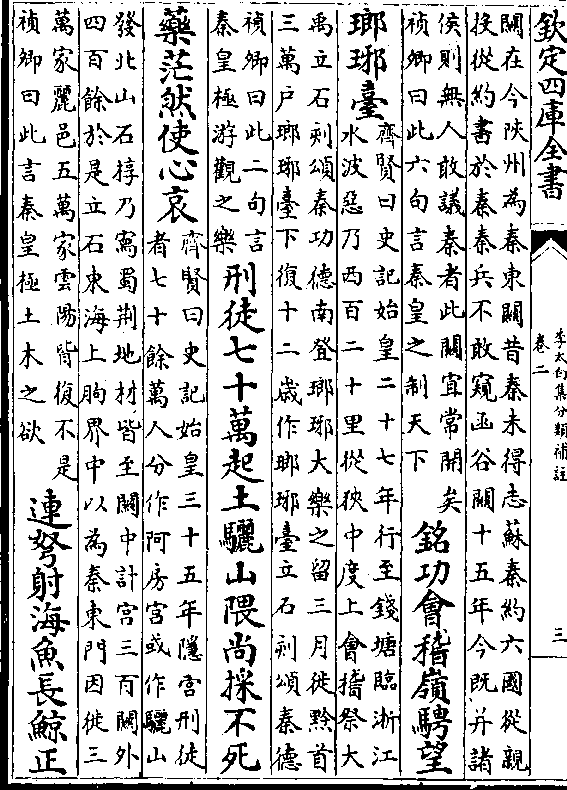 欽定四庫全書
李太白集分類補註
卷二
三
關在今陝州為秦東關昔秦未得志蘇秦約六國從親
投從約書於秦秦兵不敢窺函谷關十五年今既并諸
侯則無人敢議秦者此關宜常開矣
禎卿曰此六句言秦皇之制天下
銘功會稽嶺騁望
瑯琊臺
齊賢曰史記始皇二十七年行至錢塘臨浙江
水波惡乃西百二十里從狹中度上會稽祭大
禹立石刻頌秦功德南登瑯琊大樂之留三月徙黔首
三萬戶瑯琊臺下復十二歲作瑯琊臺立石刻頌秦德
禎卿曰此二句言
秦皇極游觀之樂
刑徒七十萬起土驪山隈尚採不死
藥茫然使心哀
齊賢曰史記始皇三十五年隱宮刑徒
者七十餘萬人分作阿房宮或作驪山
發北山石椁乃寫蜀荆地材皆至關中計宮三百關外
四百餘於是立石東海上朐界中以為秦東門因徙三
萬家麗邑五萬家雲陽皆復不是
禎卿曰此言秦皇極土木之欲
連弩射海魚長鯨正